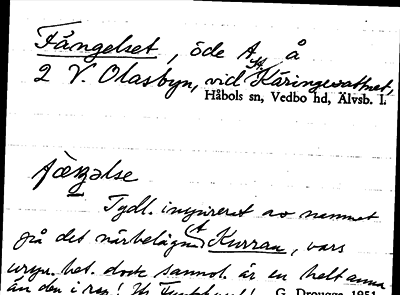 Fängelset, öde Ast. å
2 V. Olasbyn, vid Käringesattnet,
Håbols sn, Vedbo hd, Älvsb. l.
fæŋəlse
Tydl. inspirerat av namnet
på det närbelägna Kurran, vars
urspr. bet. dock sannol. är en helt annan
än den i rsp!
G. Drougge 1951